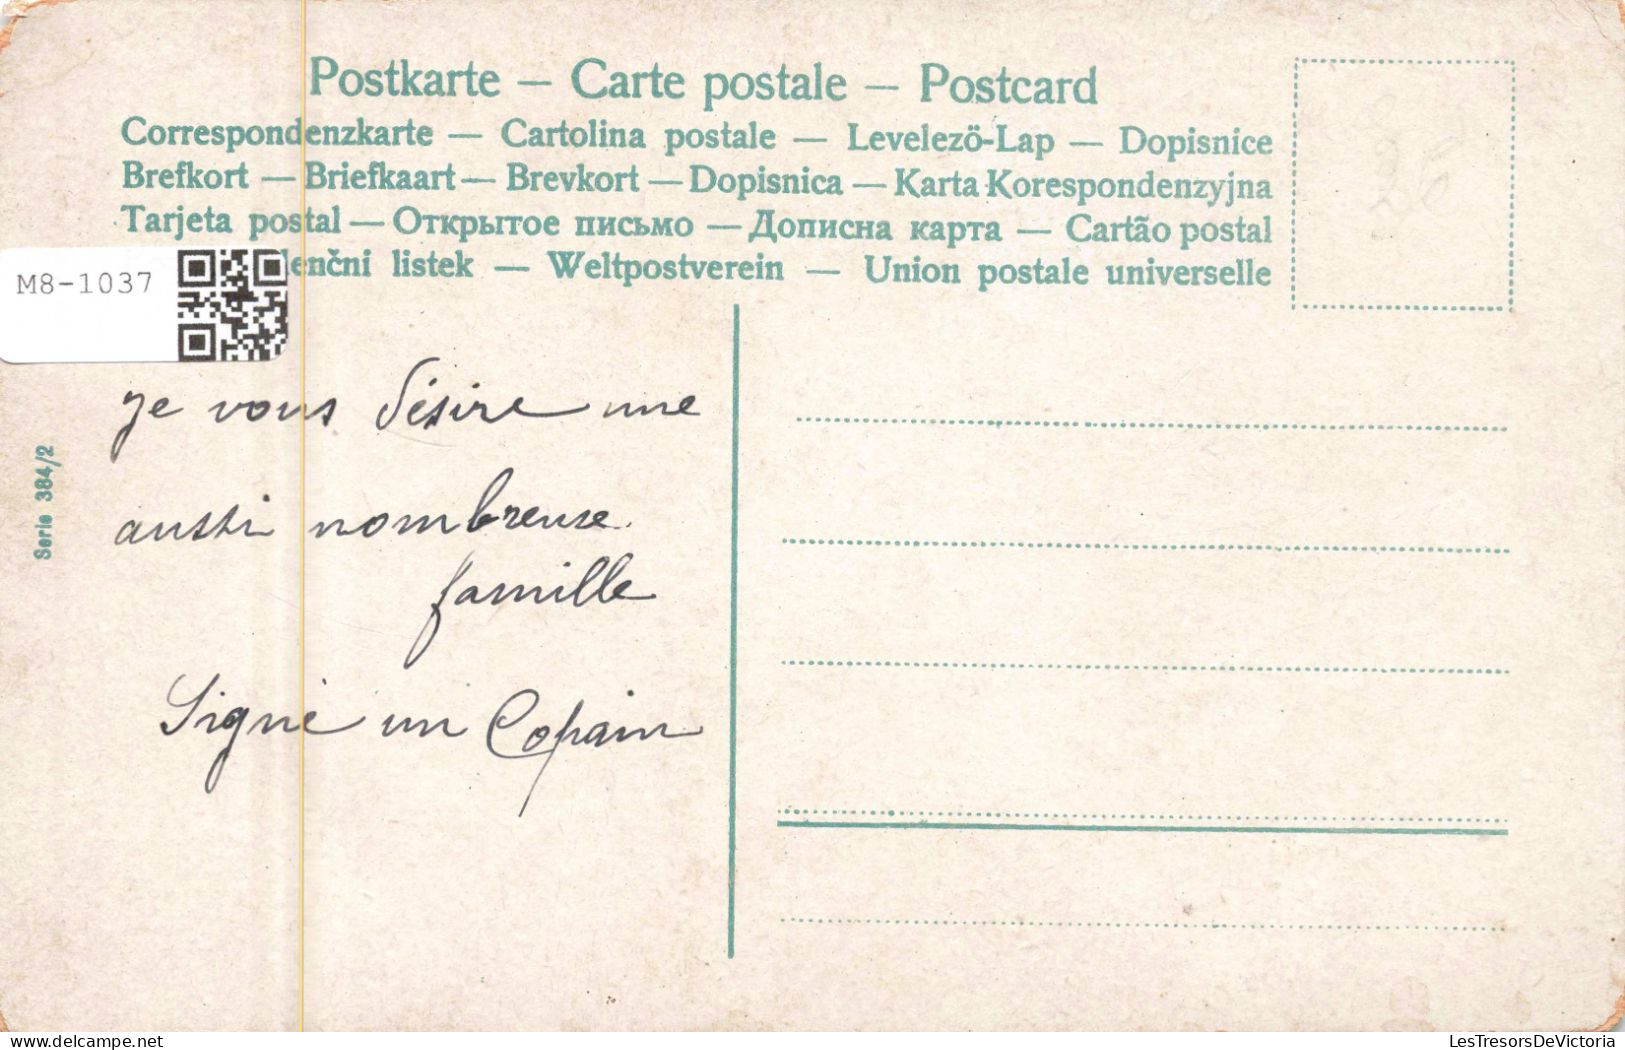 Postkarte — Carte postale — Postcard
Correspondenzkarte — Cartolina postale — Levelezö-Lap — Dopisnice
Brefkort — Briefkaart — Brevkort — Dopisnica — Karta Korespondenzyjna
Tarjeta postal — Открытое письмо — Дописна карта — Cartão postal
enčni listek — Weltpostverein — Union postale universelle
M8-1037
Serie 384/2
26
je vous désire une
aussi nombreuse
famille
Signé un Copain
LesTresorsDeVictoria
www.delcampe.net